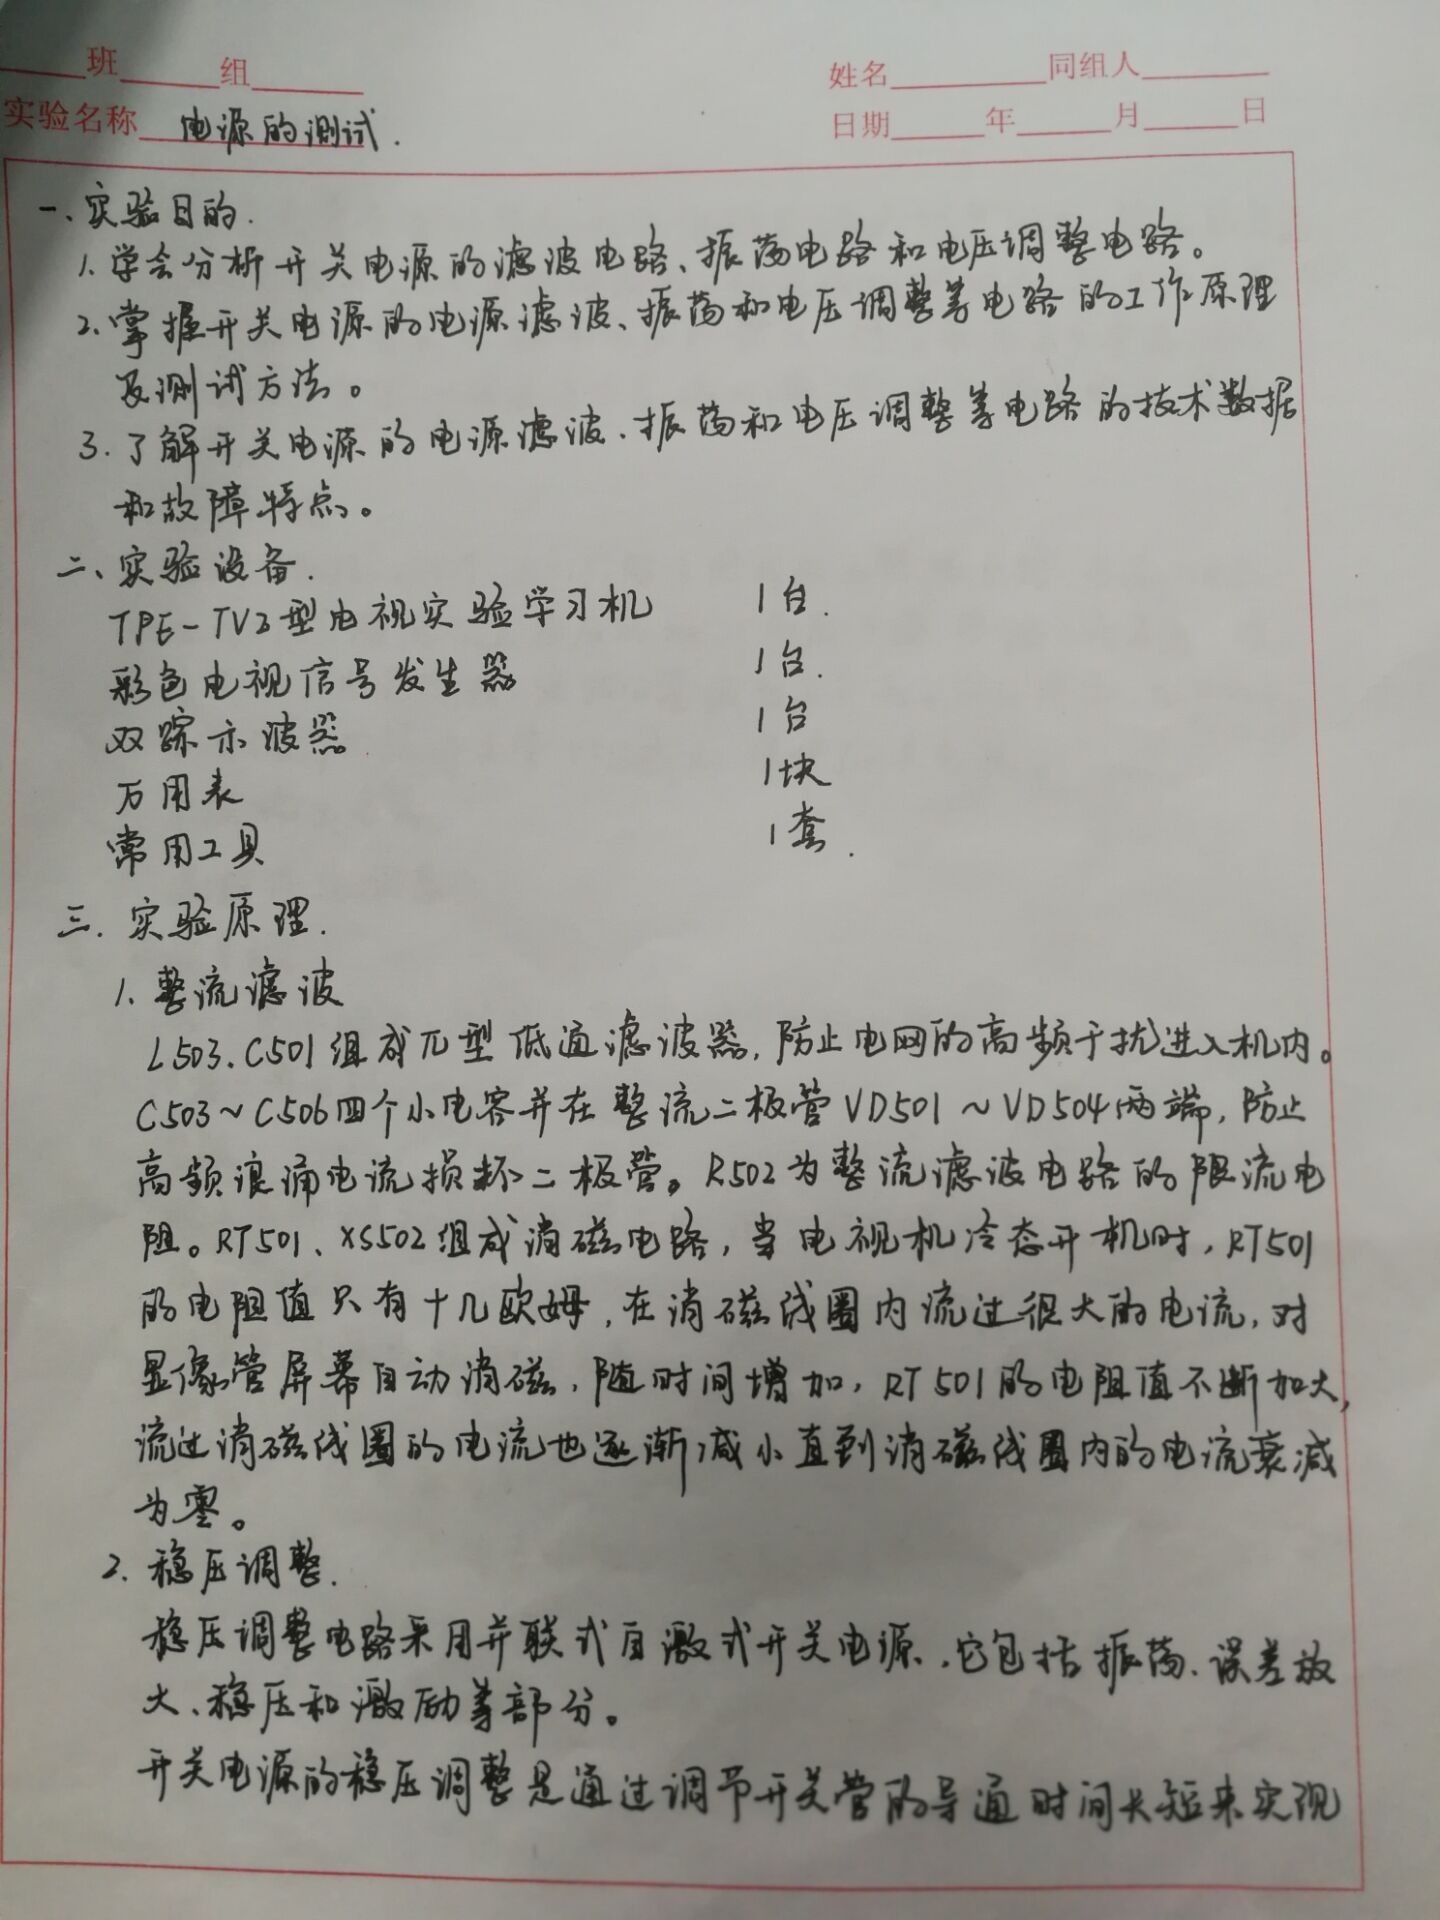 班 组 姓名 同组人
实验名称 电源的测试. 日期 年 月 日
一、实验目的.
1. 学会分析开关电源的滤波电路、振荡电路和电压调整电路。
2. 掌握开关电源的电源滤波、振荡和电压调整等电路的工作原理
及测试方法。
3. 了解开关电源的电源滤波、振荡和电压调整等电路的技术数据
和故障特点。
二、实验设备.
TPE-TV3型电视实验学习机 1台.
彩色电视信号发生器 1台.
双踪示波器 1台
万用表 1块
常用工具 1套.
三. 实验原理.
1. 整流滤波
L503、C501组成π型低通滤波器,防止电网的高频干扰进入机内。
C503~C506四个小电容并在整流二极管VD501~VD504两端,防止
高频浪涌电流损坏二极管。R502为整流滤波电路的限流电
阻。RT501、XS502组成消磁电路,当电视机冷态开机时,RT501
的电阻值只有十几欧姆,在消磁线圈内流过很大的电流,对
显像管屏幕自动消磁,随时间增加,RT501的电阻值不断加大,
流过消磁线圈的电流也逐渐减小直到消磁线圈内的电流衰减
为零。
2. 稳压调整.
稳压调整电路采用并联式自激式开关电源,它包括振荡、误差放
大、稳压和激励等部分。
开关电源的稳压调整是通过调节开关管的导通时间长短来实现